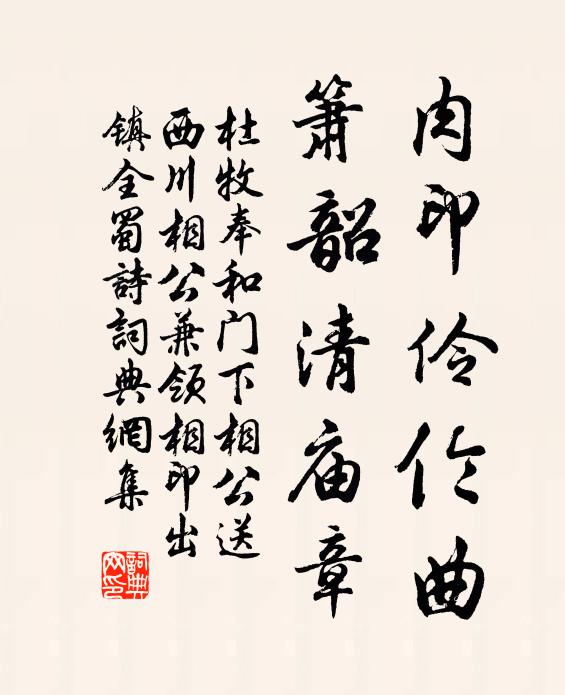 肉印伶伦曲
簫韶清庙章
杜牧奉和门下相公送
西川相公兼领相印出
鎮全蜀詩詞典網集
詞典网印